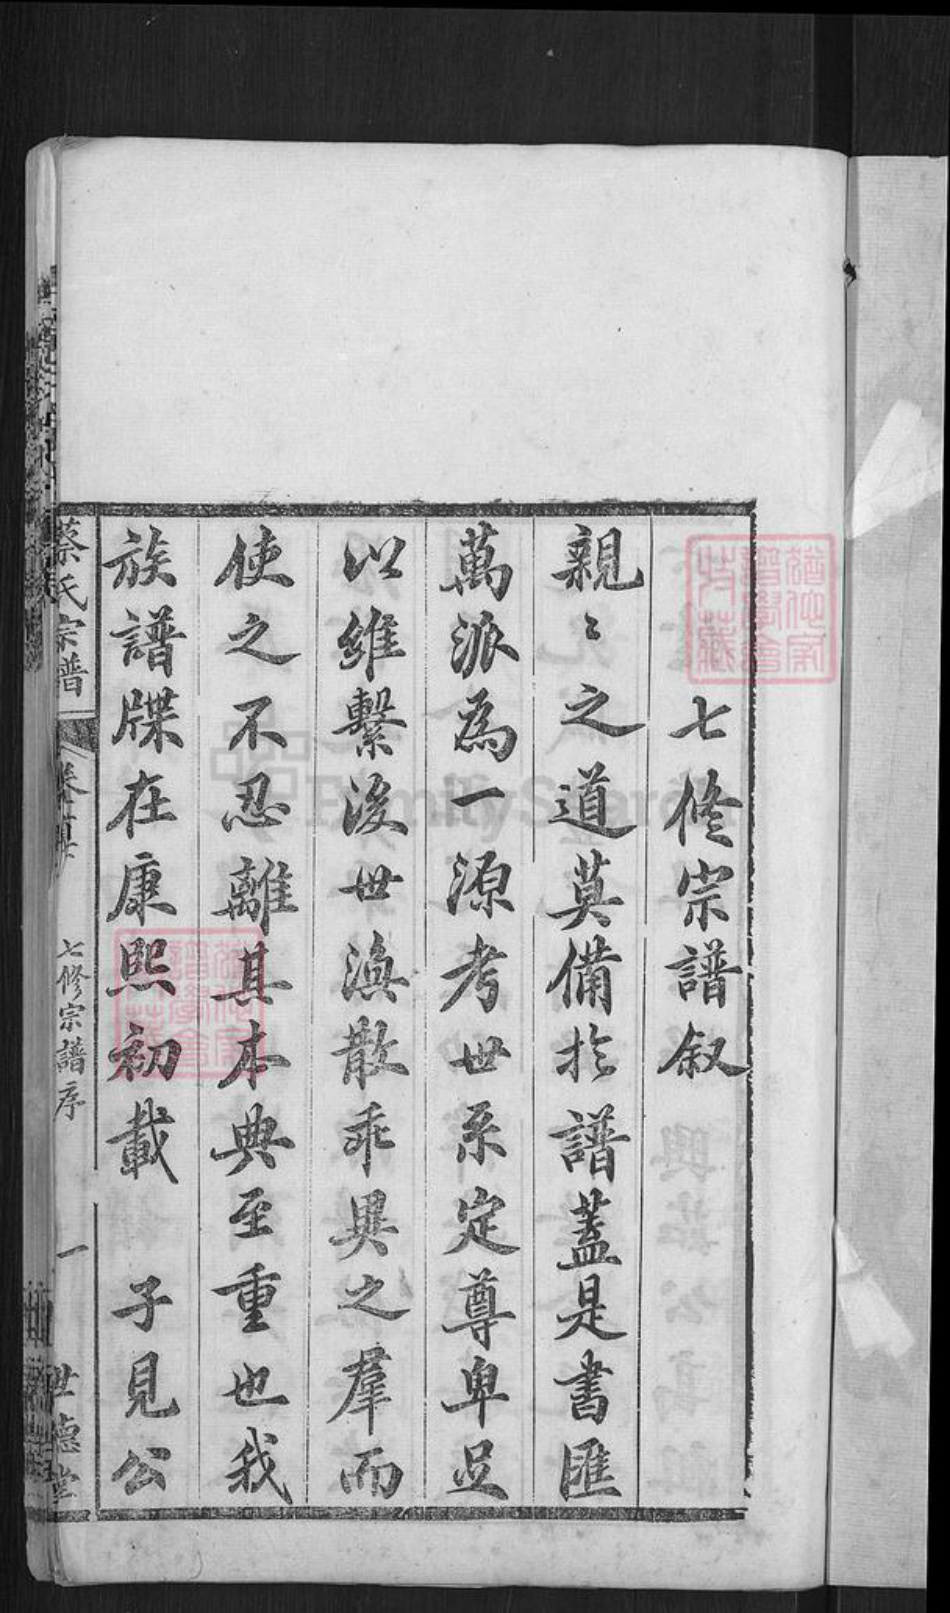 七修宗譜叙
親〻之道莫備於譜蓋是書匯
萬派為一源考世系定尊卑足
以維繫後世渙散乖異之羣而
使之不忍離其本典至重也我
族譜牒在康熙初載 子見公
蔡氏宗譜
七修宗譜序
一
世德堂
FamilySearch